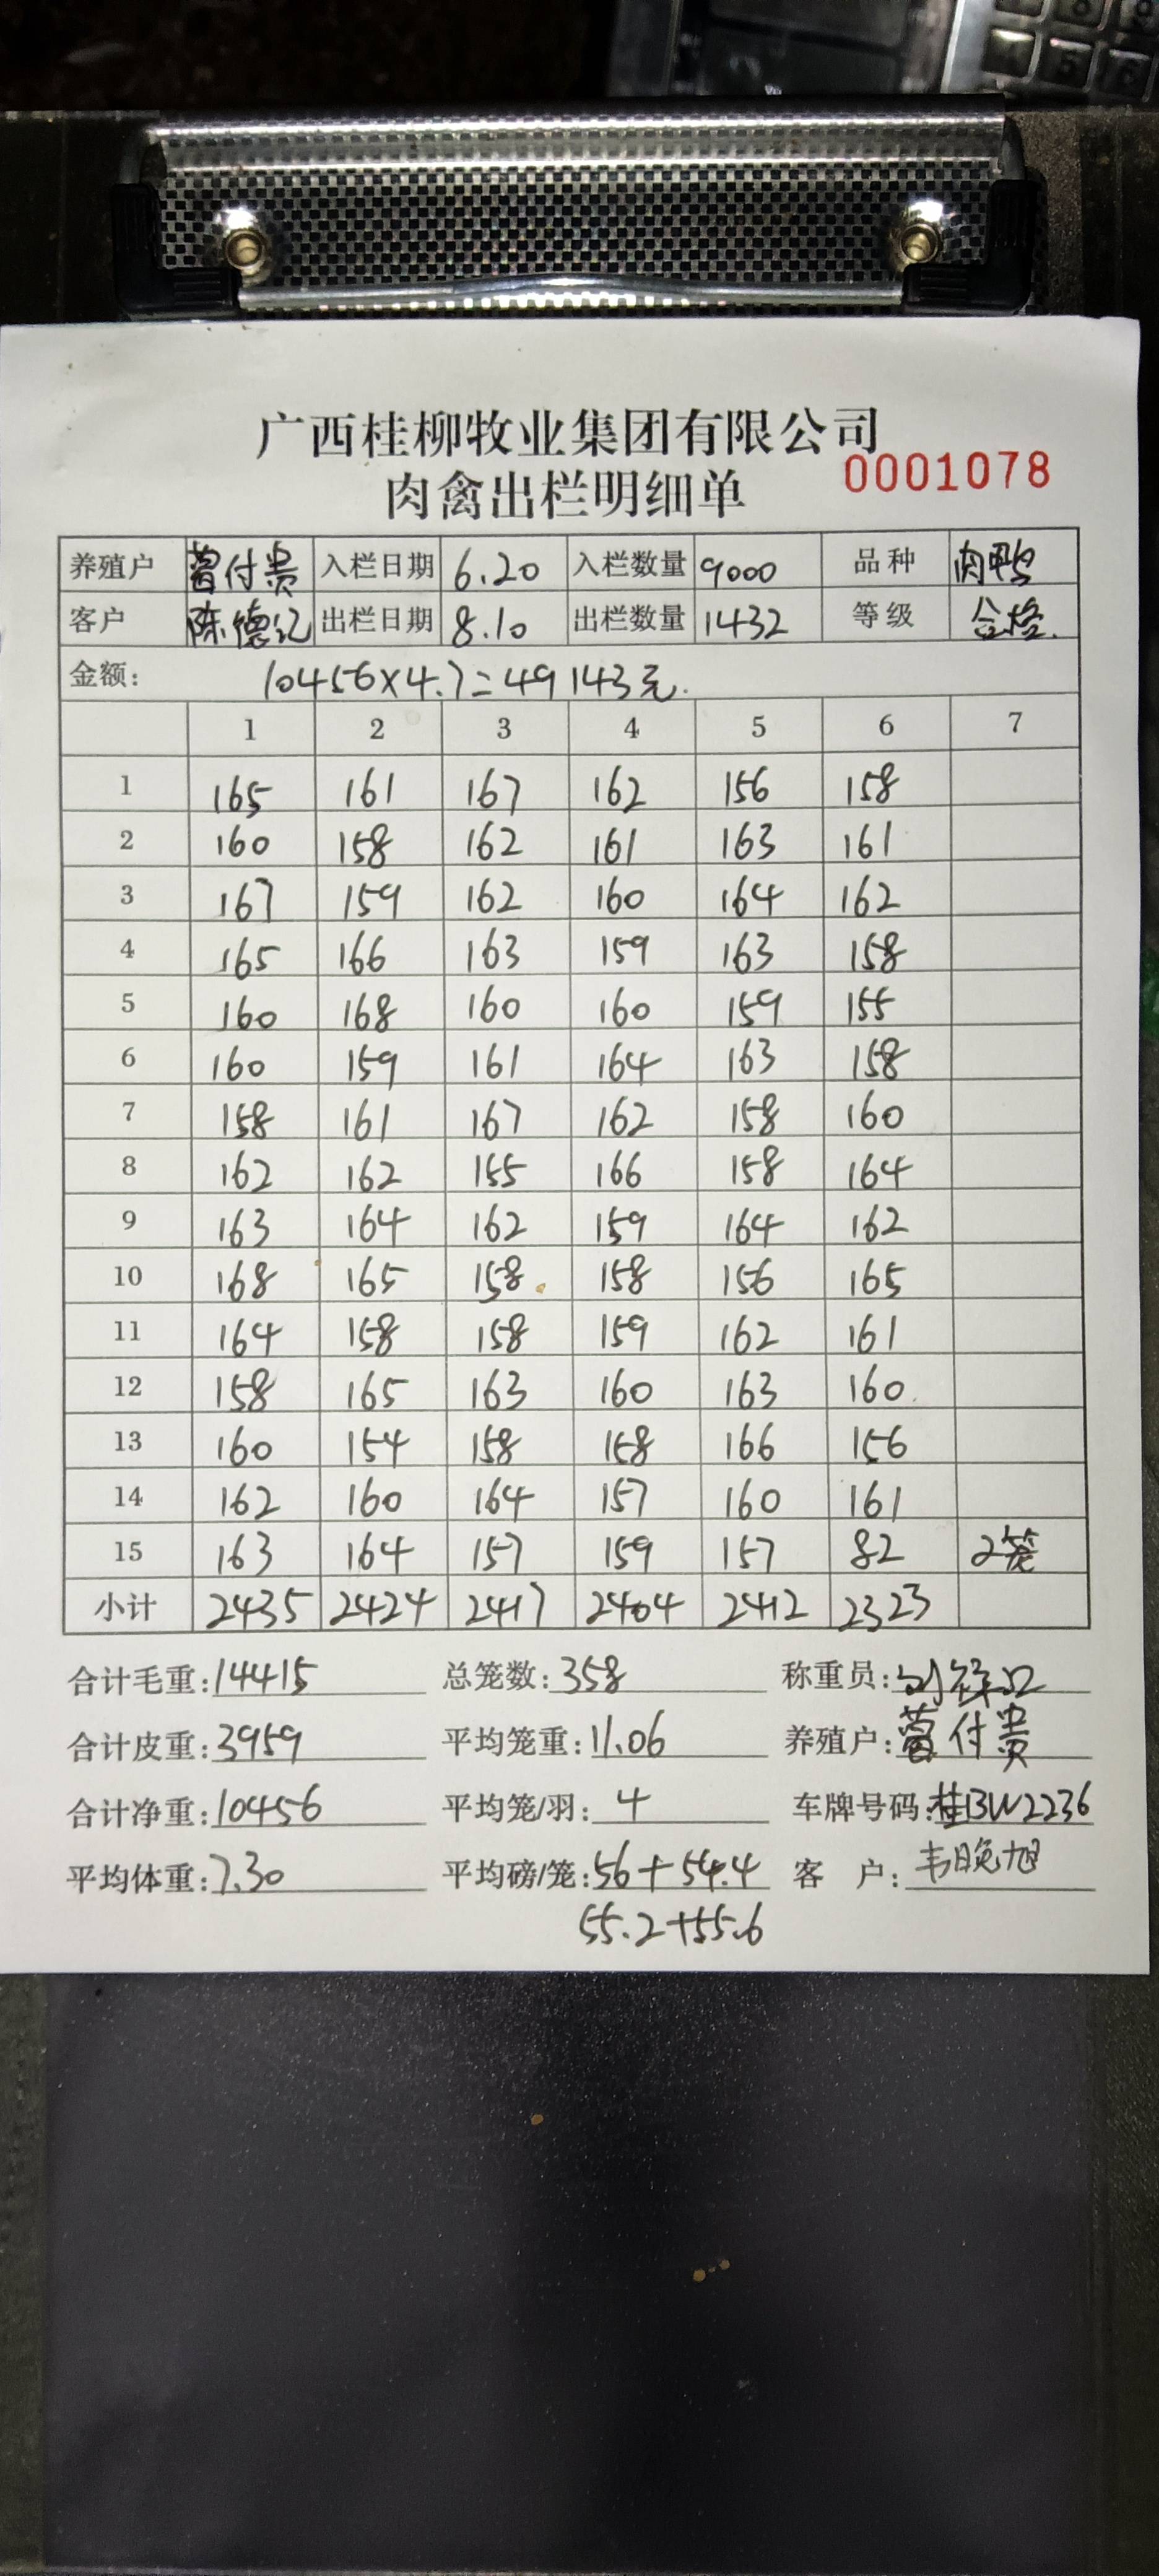 广西桂柳牧业集团有限公司
肉禽出栏明细单 0001078
养殖户 付贵 入栏日期 6.20 入栏数量 9000 品种 肉鸭
客户 陈德记 出栏日期 8.10 出栏数量 1432 等级 合格.
金额: 10456×4.7=49143元.
1 2 3 4 5 6 7
1 165 161 167 162 156 158
2 160 158 162 161 163 161
3 167 159 162 160 164 162
4 165 166 163 159 163 158
5 160 168 160 160 159 155
6 160 159 161 164 163 158
7 158 161 167 162 158 160
8 162 162 155 166 158 164
9 163 164 162 159 164 162
10 168 165 158 158 156 165
11 164 158 158 159 162 161
12 158 165 163 160 163 160.
13 160 154 158 158 166 156
14 162 160 164 157 160 161
15 163 164 157 159 157 82 2笼
小计 2435 2424 2417 2404 2412 2323
合计毛重:14415 总笼数:358 称重员:
合计皮重:3959 平均笼重:11.06 养殖户: 付贵
合计净重:10456 平均笼/羽: 4 车牌号码:桂BW2236
平均体重:7.30 平均磅/笼:56+54.4 客 户: 韦晚旭
55.2+55.6